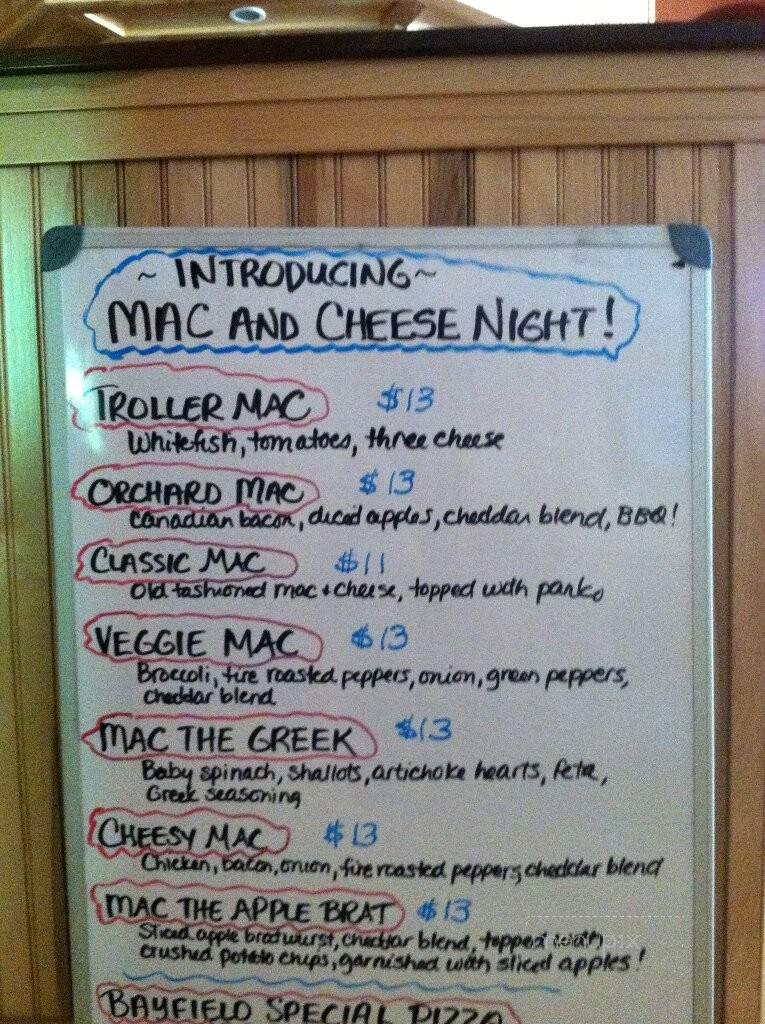 ~ INTRODUCING ~
MAC AND CHEESE NIGHT!
TROLLER MAC $13
Whitefish, tomatoes, three cheese
ORCHARD MAC $13
Canadian bacon, diced apples, cheddar blend, BBQ!
CLASSIC MAC $11
Old fashioned mac + cheese, topped with panko
VEGGIE MAC $13
Broccoli, fire roasted peppers, onion, green peppers,
cheddar blend
MAC THE GREEK $13
Baby spinach, shallots, artichoke hearts, feta,
Greek seasoning
CHEESY MAC $13
Chicken, bacon, onion, fire roasted peppers, cheddar blend
MAC THE APPLE BRAT $13
Sliced apple bratwurst, cheddar blend, topped with
crushed potato chips, garnished with sliced apples!
BAYFIELD SPECIAL PIZZA